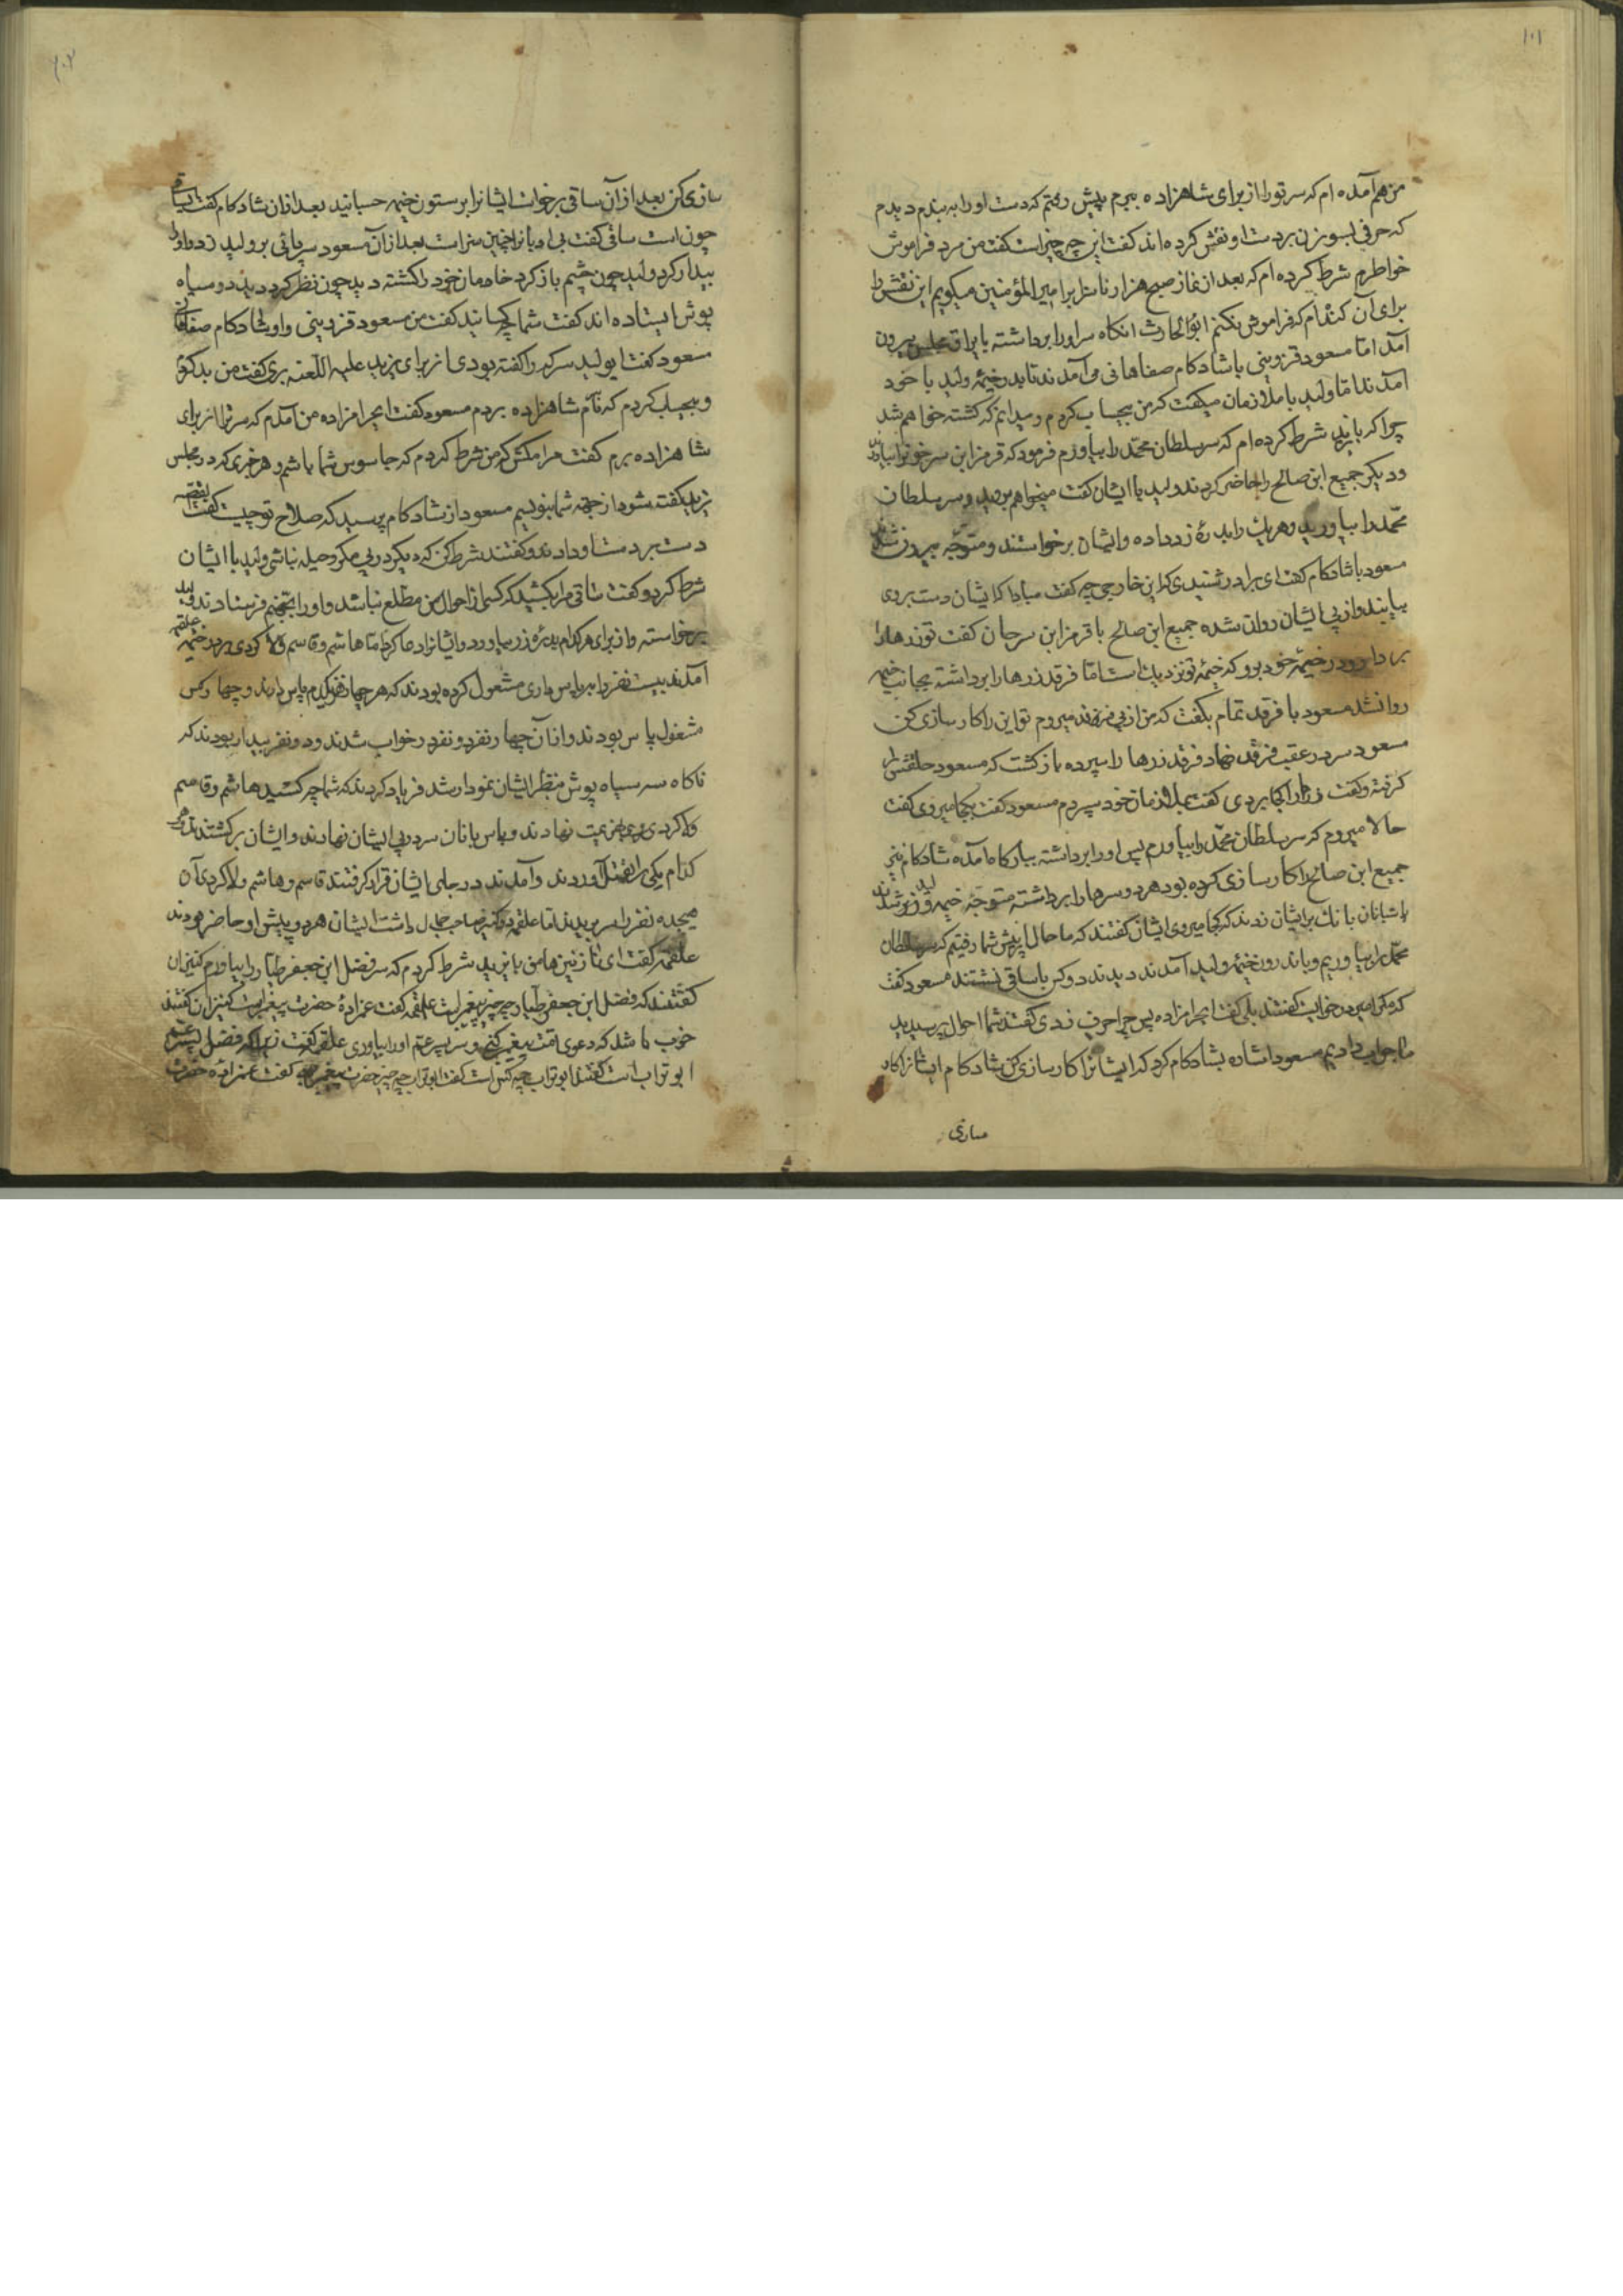 ۱۰۲
من هم آمده ام که سر تو را از برای شاهزاده ببرم پیش رفتم که دست او را به بندم دیدم
که حرفی بسوزن بر دست او نقش کرده اند گفت این چه چیز است گفت من مرد فراموش
خاطرم شرط کرده ام که بعد از نماز صبح هزار ناسزا بر امیر المؤمنین میگویم این نقش را
برای آن کنده ام که فراموش نکنم ابوالحارث انکاه سر او را برداشته با یراق مجلس بیرون
آمد اما مسعود قزوینی با شادکام صفاهانی می آمدند تا بدر خیمهٔ ولید با خود
آمدند اما ولید با ملازمان میگفت که من بیجا کردم و میدانم که کشته خواهم شد
چرا که با یزید شرط کرده ام که سر سلطان محمّد را بیاورم فرمود که قرمز ابن سرخو را بیاورند
و دیگر جمیع ابن صالح را حاضر کردند ولید با ایشان گفت میخواهم بروید و سر سلطان
محمّد را بیاورید و هر یک را بدرهٔ زر داده و ایشان برخواستند و متوجّه بیرون شدند
مسعود با شادکام گفت ای برادر شنیدی که این خارجی چه گفت مبادا که ایشان دست بردی
بیابند و از پی ایشان روان شده جمیع ابن صالح با قرمز ابن سرجان گفت تو زرها را
بردار و در خیمهٔ خود برو که خیمهٔ تو نزدیک است اما فرقد زرها را برداشته بجانب خیمه
روانشد مسعود با فرقد تمام بگفت که من از پی میروم تو این را کارسازی کن
مسعود سر در عقب فرقد نهاد فرقد زرها را سپرده بازگشت که مسعود حلقش را
گرفته و گفت زرها را کجا بردی گفت بملازمان خود سپردم مسعود گفت بکجا میروی گفت
حالا میروم که سر سلطان محمّد را بیاورم پس او را برداشته ببارگاه آمده شادکام نیز
جمیع ابن صالح را کارسازی کرده بود هر دو سرها را برداشته متوجّه خیمهٔ ولید شدند
پاسبانان بانک بر ایشان زدند که کجا میروی ایشان گفتند که ما حالا از پیش شما رفتیم که سر سلطان
محمّد را بیاوریم و باندرون خیمهٔ ولید آمدند دیدند دو کس با ساقی نشستند مسعود گفت
که مگر امیر در خوابست گفتند بلی گفت ایحرامزاده پس چرا حرف زدی گفتند شما احوال پرسیدید
ما جواب دادیم مسعود اشاره بشادکام کرد که ایشانرا کارسازی کن شادکام ایشانرا کار
سازی
۱۰۳
سازی کن بعد از آن ساقی برخواست ایشانرا بر ستون خیمه چسبانید بعد از آن شادکام گفت ای ساقی
چون است ساقی گفت بی ادبانرا چنین سزا است بعد از آن مسعود سر پائی بر ولید زد و او را
بیدار کرد ولید چون چشم باز کرد خادمان خود را کشته دید چون نظر کرد دید دو سیاه
پوش ایستاده اند گفت شما چه کسانید گفت من مسعود قزوینی و او شادکام صفاهانی
مسعود گفت ایولید سر که را گفته بودی از برای یزید علیه اللّعنه بری گفت من بد کردم
و بیجا کردم که نام شاهزاده بردم مسعود گفت ایحرامزاده من آمدم که سر ترا از برای
شاهزاده برم گفت مرا مکش که من شرط کردم که جاسوس شما باشم و هر خبری که در مجلس
یزید گفته شود از جهة شما بنویسم مسعود از شادکام پرسید که صلاح تو چیست گفت القصّه
دست بر دست او دادند و گفتند شرط کن که دیگر در پی مکر و حیله نباشی ولید با ایشان
شرط کرد و گفت ساقی را بکشید که کسی از احوال من مطلع نباشد و او را بجهنّم فرستادند ولید
برخواسته و از برای هر کدام بدرهٔ زر بیاورد و ایشانرا دعا کرد اما هاشم و قاسم ولا کردی بدر خیمهٔ علقمه
آمدند بیست نفر را به پاس داری مشغول کرده بودند که هر چهار نفر یکدم پاس دارند و چهار کس
مشغول پاس بودند و از آن چهار نفر دو نفر در خواب شدند و دو نفر بیدار بودند که
ناکاه سه سیاه پوش منظر ایشان نمودار شد فریاد کردند که شما چه کسید هاشم و قاسم
ولا کردی رو بهزیمت نهادند و پاس بانان سر در پی ایشان نهادند و ایشان برگشتند و هر
کدام یکی را بقتل آوردند و آمدند در جای ایشان قرار گرفتند قاسم و هاشم ولا کردی آن
هیجده نفر را سر بریدند اما علقمه دو کنیز صاحب جمال داشت ایشان هر دو پیش او حاضر بودند
علقمه گفت ای نازنین ها من با یزید شرط کردم که سر فضل ابن جعفر طیّار را بیاورم کنیزان
گفتند که فضل ابن جعفر طیّار چه چیز پیغمبر است علقمه گفت عمزادهٔ حضرت پیغمبر است کنیزان گفتند
خوب باشد که دعوی امّت پیغمبر کنی و سر پسر عمّ او را بیاوری علقمه گفت زیرا که فضل پسر عمّ
ابو تراب است گفتند ابو تراب چه کس است گفت ابو تراب چه چیز حضرت پیغمبر است گفت عمزادهٔ حضرت